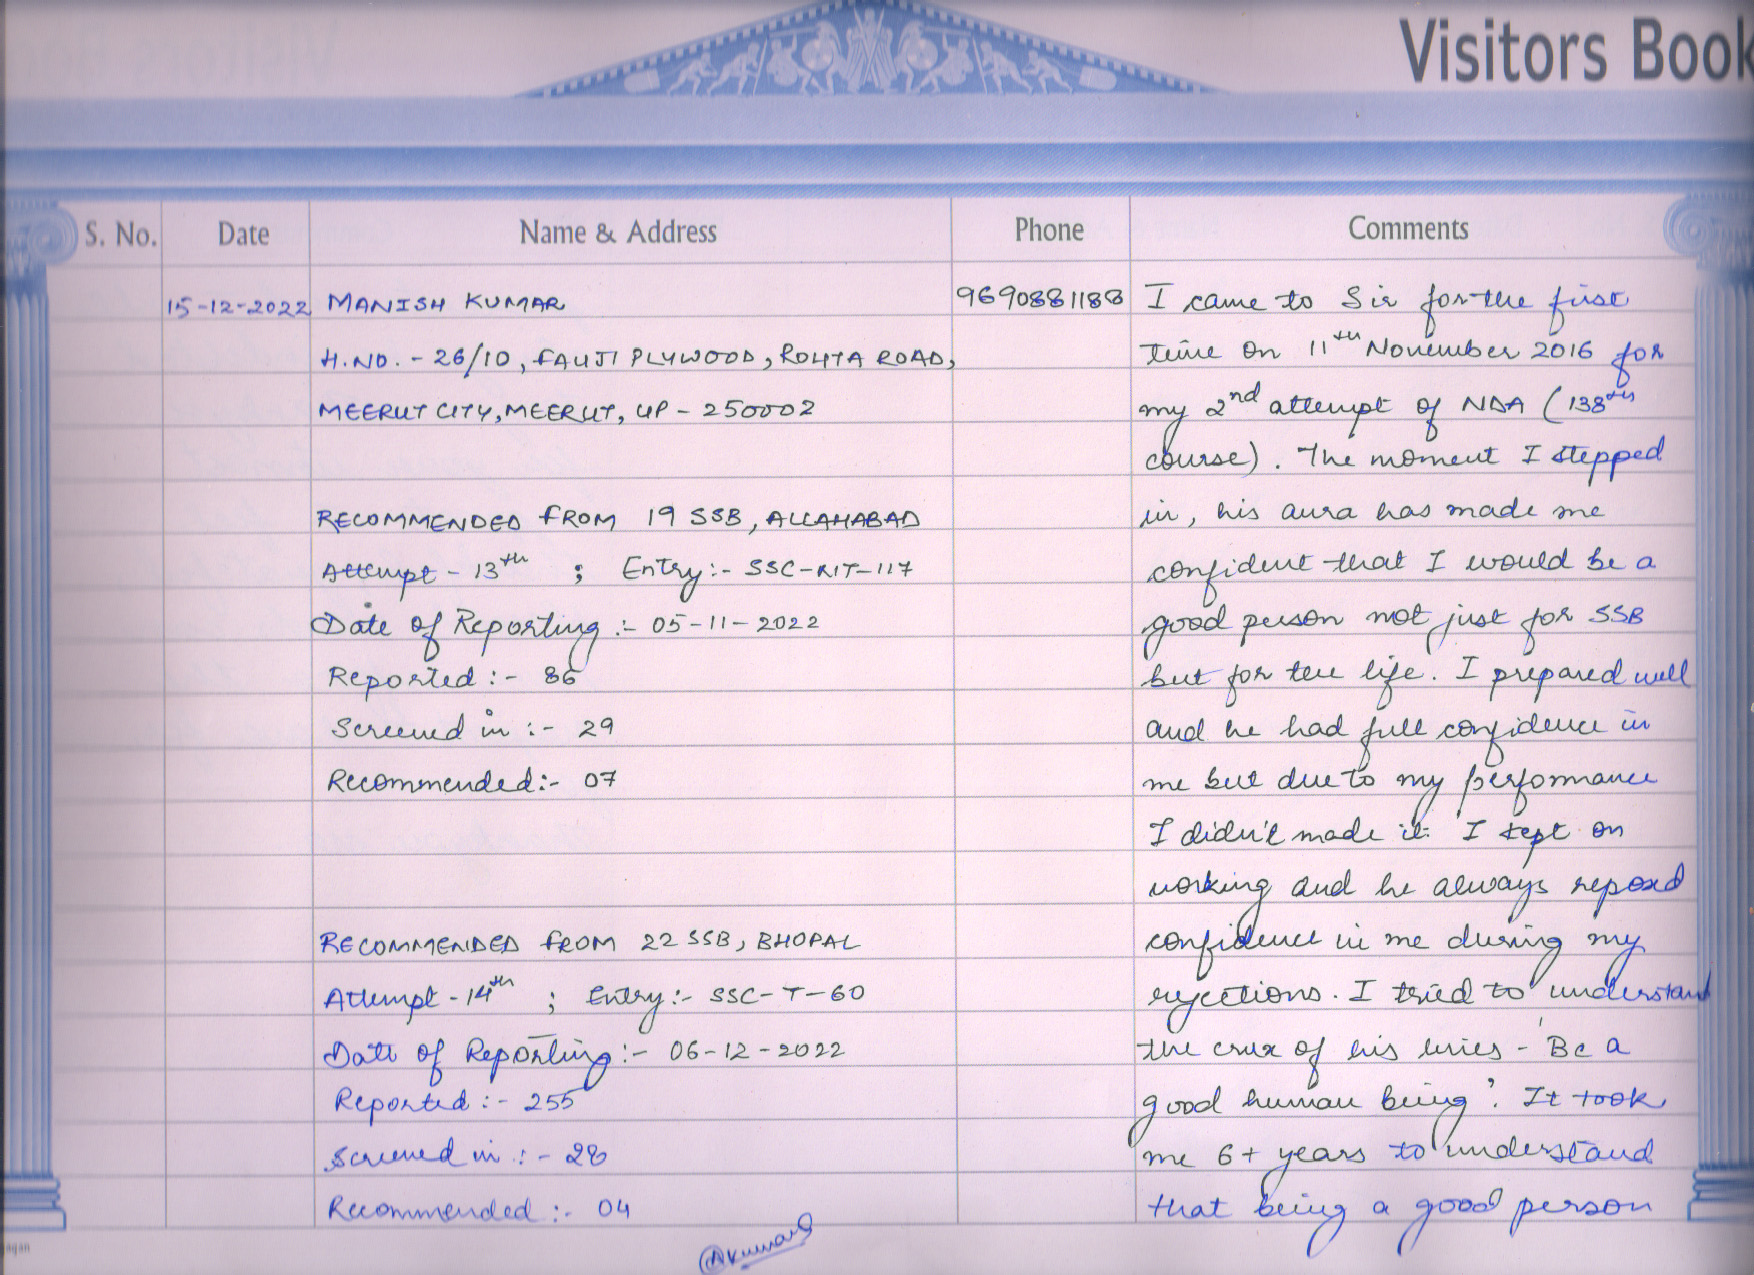 Visitors Book
S. No. Date Name & Address Phone Comments
15-12-2022 MANISH KUMAR 9690881188
H.NO. - 26/10, FAUJI PLYWOOD, ROHTA ROAD,
MEERUT CITY, MEERUT, UP - 250002
RECOMMENDED FROM 19 SSB, ALLAHABAD
Attempt - 13th ; Entry:- SSC-NT-117
Date of Reporting :- 05-11-2022
Reported :- 86
Screened in :- 29
Recommended:- 07
RECOMMENDED FROM 22 SSB, BHOPAL
Attempt - 14th ; Entry:- SSC-T-60
Date of Reporting:- 06-12-2022
Reported :- 255
Screened in :- 28
Recommended :- 04
I came to Sir for the first
time on 11th November 2016 for
my 2nd attempt of NDA (138th
course). The moment I stepped
in, his aura has made me
confident that I would be a
good person not just for SSB
but for the life. I prepared well
and he had full confidence in
me but due to my performance
I didn't made it. I kept on
working and he always reposed
confidence in me during my
rejections. I tried to understand
the crux of his lines - 'Be a
good human being'. It took
me 6+ years to understand
that being a good person